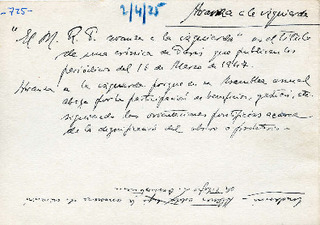 -725-
2/4/25
Avanza a la izquierda
"El M. R. P. avanza a la izquierda" es el título
de una crónica de París que publican los
periódicos del 16 de Marzo de 1947.
Avanza a la izquierda porque en su Asamblea anual
aboga por la participación en beneficios, gestión, etc.
siguiendo las orientaciones pontificias acerca
de la dignificación del obrero o productor.-